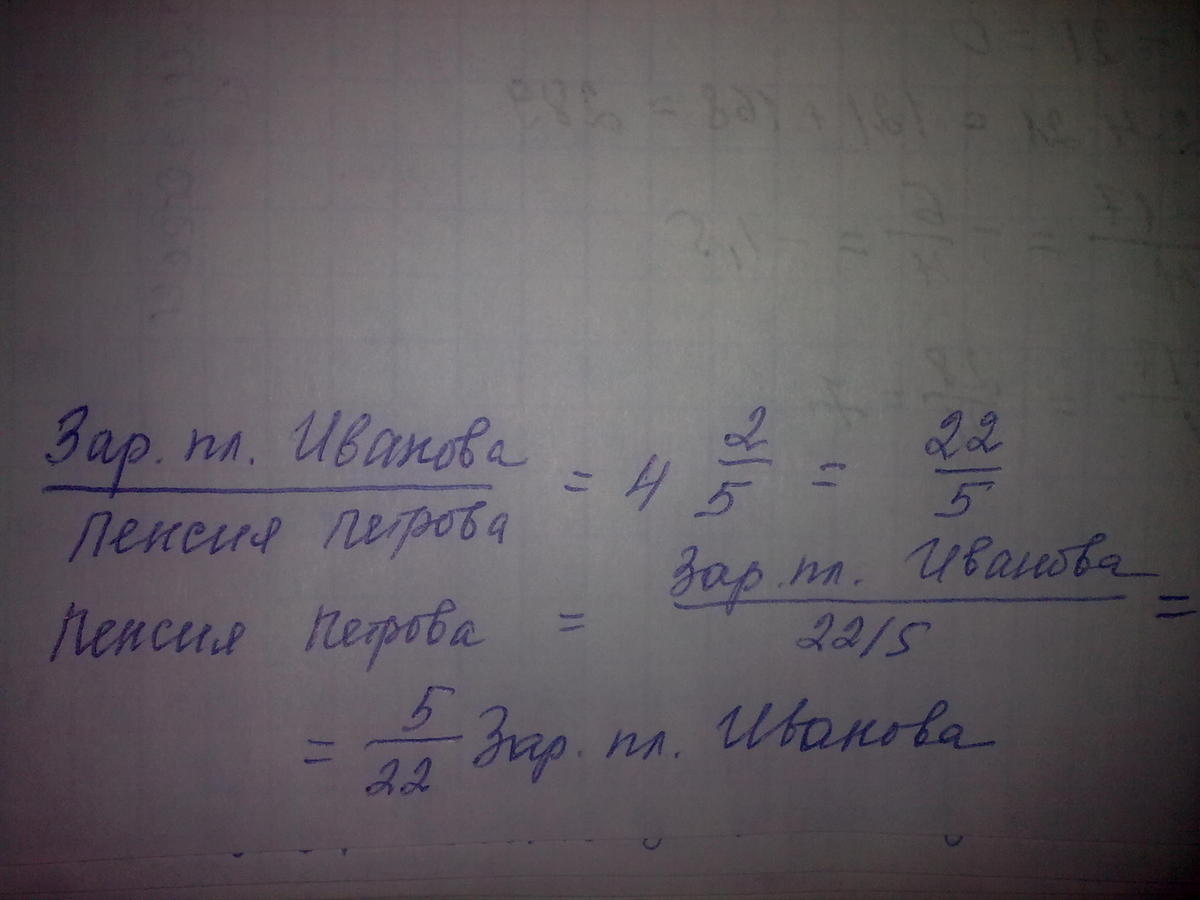 Зар. пл. Иванова / Пенсия Петрова = 4 2/5 = 22/5
Пенсия Петрова = Зар. пл. Иванова / 22/5 =
= 5/22 Зар. пл. Иванова